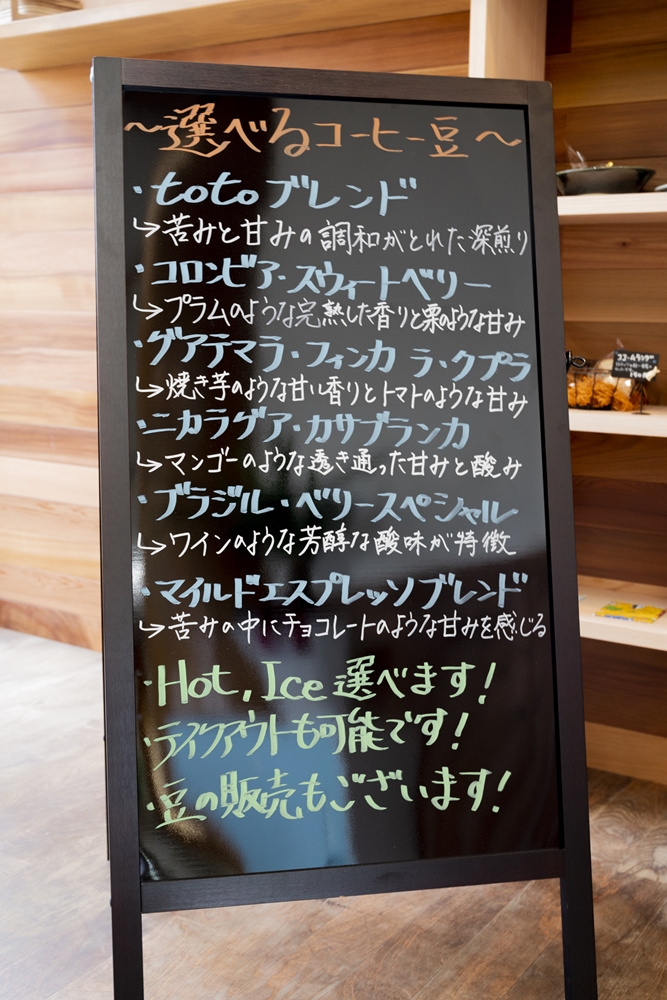 ～選べるコーヒー豆～
・totoブレンド
↳苦みと甘みの調和がとれた深煎り
・コロンビア・スウィートベリー
↳プラムのような完熟した香りと栗のような甘み
・グアテマラ・フィンカ ラ・クプラ
↳焼き芋のような甘い香りとトマトのような甘み
・ニカラグア・カサブランカ
↳マンゴーのような透き通った甘みと酸み
・ブラジル・ベリースペシャル
↳ワインのような芳醇な酸味が特徴
・マイルドエスプレッソブレンド
↳苦みの中にチョコレートのような甘みを感じる
・Hot, Ice 選べます！
・テイクアウトも可能です！
・豆の販売もございます！